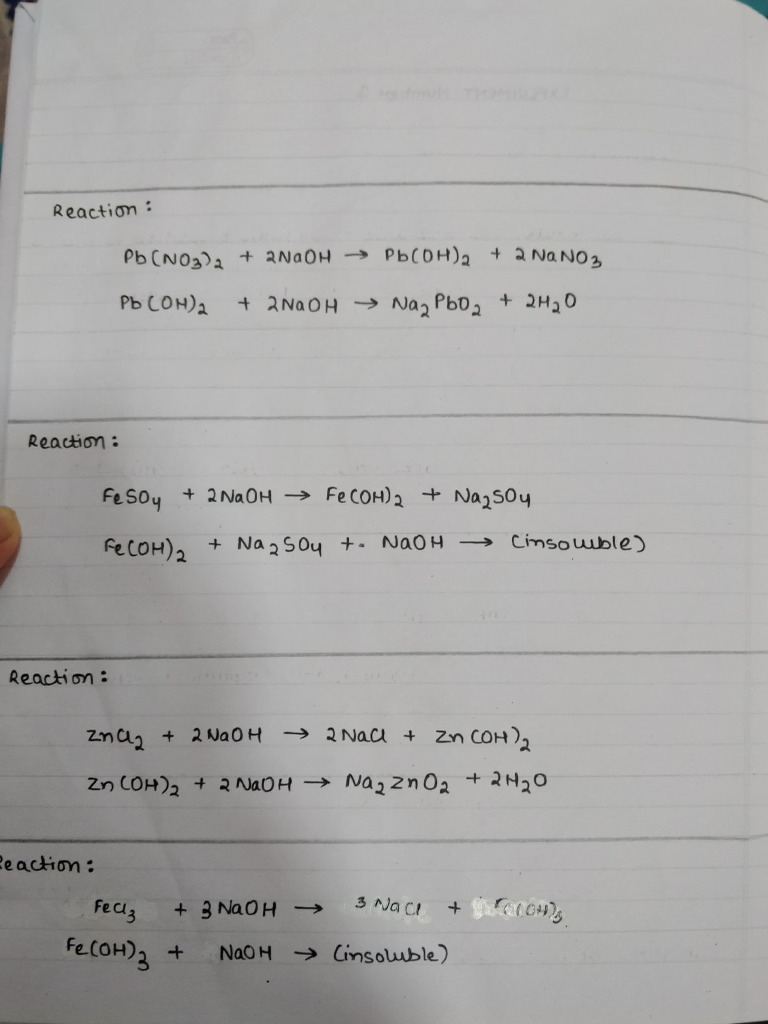 Reaction:
Pb(NO₃)₂ + 2NaOH → Pb(OH)₂ + 2NaNO₃
Pb(OH)₂ + 2NaOH → Na₂PbO₂ + 2H₂O
Reaction:
FeSO₄ + 2NaOH → Fe(OH)₂ + Na₂SO₄
Fe(OH)₂ + Na₂SO₄ + NaOH → (insoluble)
Reaction:
ZnCl₂ + 2NaOH → 2NaCl + Zn(OH)₂
Zn(OH)₂ + 2NaOH → Na₂ZnO₂ + 2H₂O
Reaction:
FeCl₃ + 3NaOH → 3NaCl + Fe(OH)₃
Fe(OH)₃ + NaOH → (insoluble)